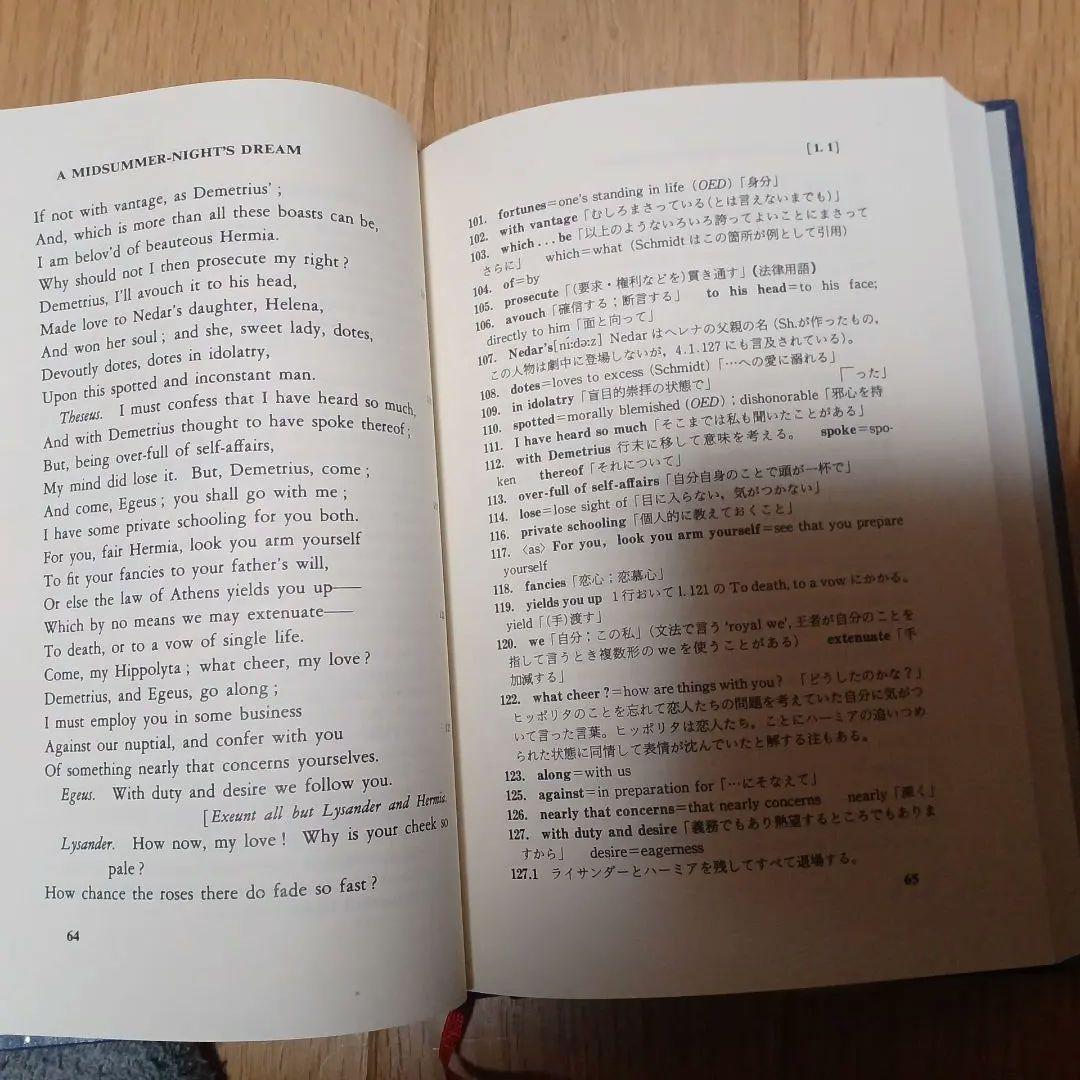 A MIDSUMMER-NIGHT'S DREAM
If not with vantage, as Demetrius' ;
And, which is more than all these boasts can be,
I am belov'd of beauteous Hermia.
Why should not I then prosecute my right ?
Demetrius, I'll avouch it to his head,
Made love to Nedar's daughter, Helena,
And won her soul ; and she, sweet lady, dotes,
Devoutly dotes, dotes in idolatry,
Upon this spotted and inconstant man.
Theseus. I must confess that I have heard so much,
And with Demetrius thought to have spoke thereof ;
But, being over-full of self-affairs,
My mind did lose it. But, Demetrius, come ;
And come, Egeus ; you shall go with me ;
I have some private schooling for you both.
For you, fair Hermia, look you arm yourself
To fit your fancies to your father's will,
Or else the law of Athens yields you up—
Which by no means we may extenuate—
To death, or to a vow of single life.
Come, my Hippolyta ; what cheer, my love ?
Demetrius, and Egeus, go along ;
I must employ you in some business
Against our nuptial, and confer with you
Of something nearly that concerns yourselves.
Egeus. With duty and desire we follow you.
[Exeunt all but Lysander and Hermia.
Lysander. How now, my love ! Why is your cheek so
pale ?
How chance the roses there do fade so fast ?
64
[1. 1]
101. fortunes=one's standing in life (OED)「身分」
102. with vantage「むしろまさっている(とは言えないまでも)」
103. which...be「以上のようないろいろ誇ってよいことにまさって
さらに」 which=what (Schmidt はこの箇所が例として引用)
104. of=by
105. prosecute「(要求・権利などを)貫き通す」(法律用語)
106. avouch「確信する；断言する」 to his head=to his face;
directly to him「面と向って」
107. Nedar's[ní:dəːz] Nedar はヘレナの父親の名 (Sh.が作ったもの,
この人物は劇中に登場しないが, 4.1.127 にも言及されている)。
108. dotes=loves to excess (Schmidt)「…への愛に溺れる」
109. in idolatry「盲目的崇拝の状態で」 「った」
110. spotted=morally blemished (OED) ; dishonorable「邪心を持
111. I have heard so much「そこまでは私も聞いたことがある」
112. with Demetrius 行末に移して意味を考える。 spoke=spo-
ken thereof「それについて」
113. over-full of self-affairs「自分自身のことで頭が一杯で」
114. lose=lose sight of「目に入らない, 気がつかない」
116. private schooling「個人的に教えておくこと」
117. 〈as〉 For you, look you arm yourself=see that you prepare
yourself
118. fancies「恋心；恋慕心」
119. yields you up 1行おいて l. 121 の To death, to a vow にかかる。
yield「(手)渡す」
120. we「自分；この私」(文法で言う 'royal we', 王者が自分のことを
指して言うとき複数形の we を使うことがある) extenuate「手
加減する」
122. what cheer ?=how are things with you ? 「どうしたのかな？」
ヒッポリタのことを忘れて恋人たちの問題を考えていた自分に気がつ
いて言った言葉。ヒッポリタは恋人たち, ことにハーミアの追いつめ
られた状態に同情して表情が沈んでいたと解する注もある。
123. along=with us
125. against=in preparation for「…にそなえて」
126. nearly that concerns=that nearly concerns nearly「深く」
127. with duty and desire「義務でもあり熱望するところでもありま
すから」 desire=eagerness
127.1 ライサンダーとハーミアを残してすべて退場する。
65